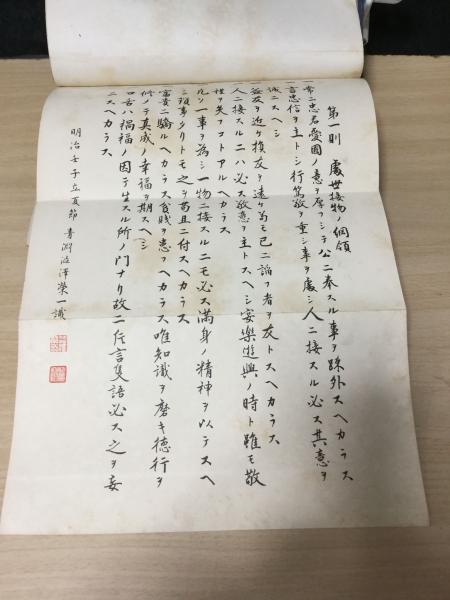 第一則 處世接物ノ綱領
一常ニ忠君愛國ノ意ヲ厚フシテ公ニ奉スル事ヲ踈外スヘカラス
一言忠信ヲ主トシ行篤敬ヲ重シ事ヲ處シ人ニ接スル必ス其意ヲ
誠ニスヘシ
一益友ヲ近ケ損友ヲ遠ケ苟モ己ニ諂フ者ヲ友トスヘカラス
一人ニ接スルニハ必ス敬意ヲ主トスヘシ宴樂遊興ノ時ト雖モ敬
禮ヲ失フコトアルヘカラス
一凡ソ一事ヲ為シ一物ニ接スルニモ必ス満身ノ精神ヲ以テスヘ
シ瑣事タリトモ之ヲ苟且ニ付スヘカラス
一富貴ニ驕ルヘカラス貧賤ヲ患フヘカラス唯知識ヲ磨キ徳行ヲ
修メテ真成ノ幸福ヲ期スヘシ
一口舌ハ禍福ノ因テ生スル所ノ門ナリ故ニ片言隻語必ス之ヲ妄
ニスヘカラス
明治壬子立夏節 青淵澁澤榮一識